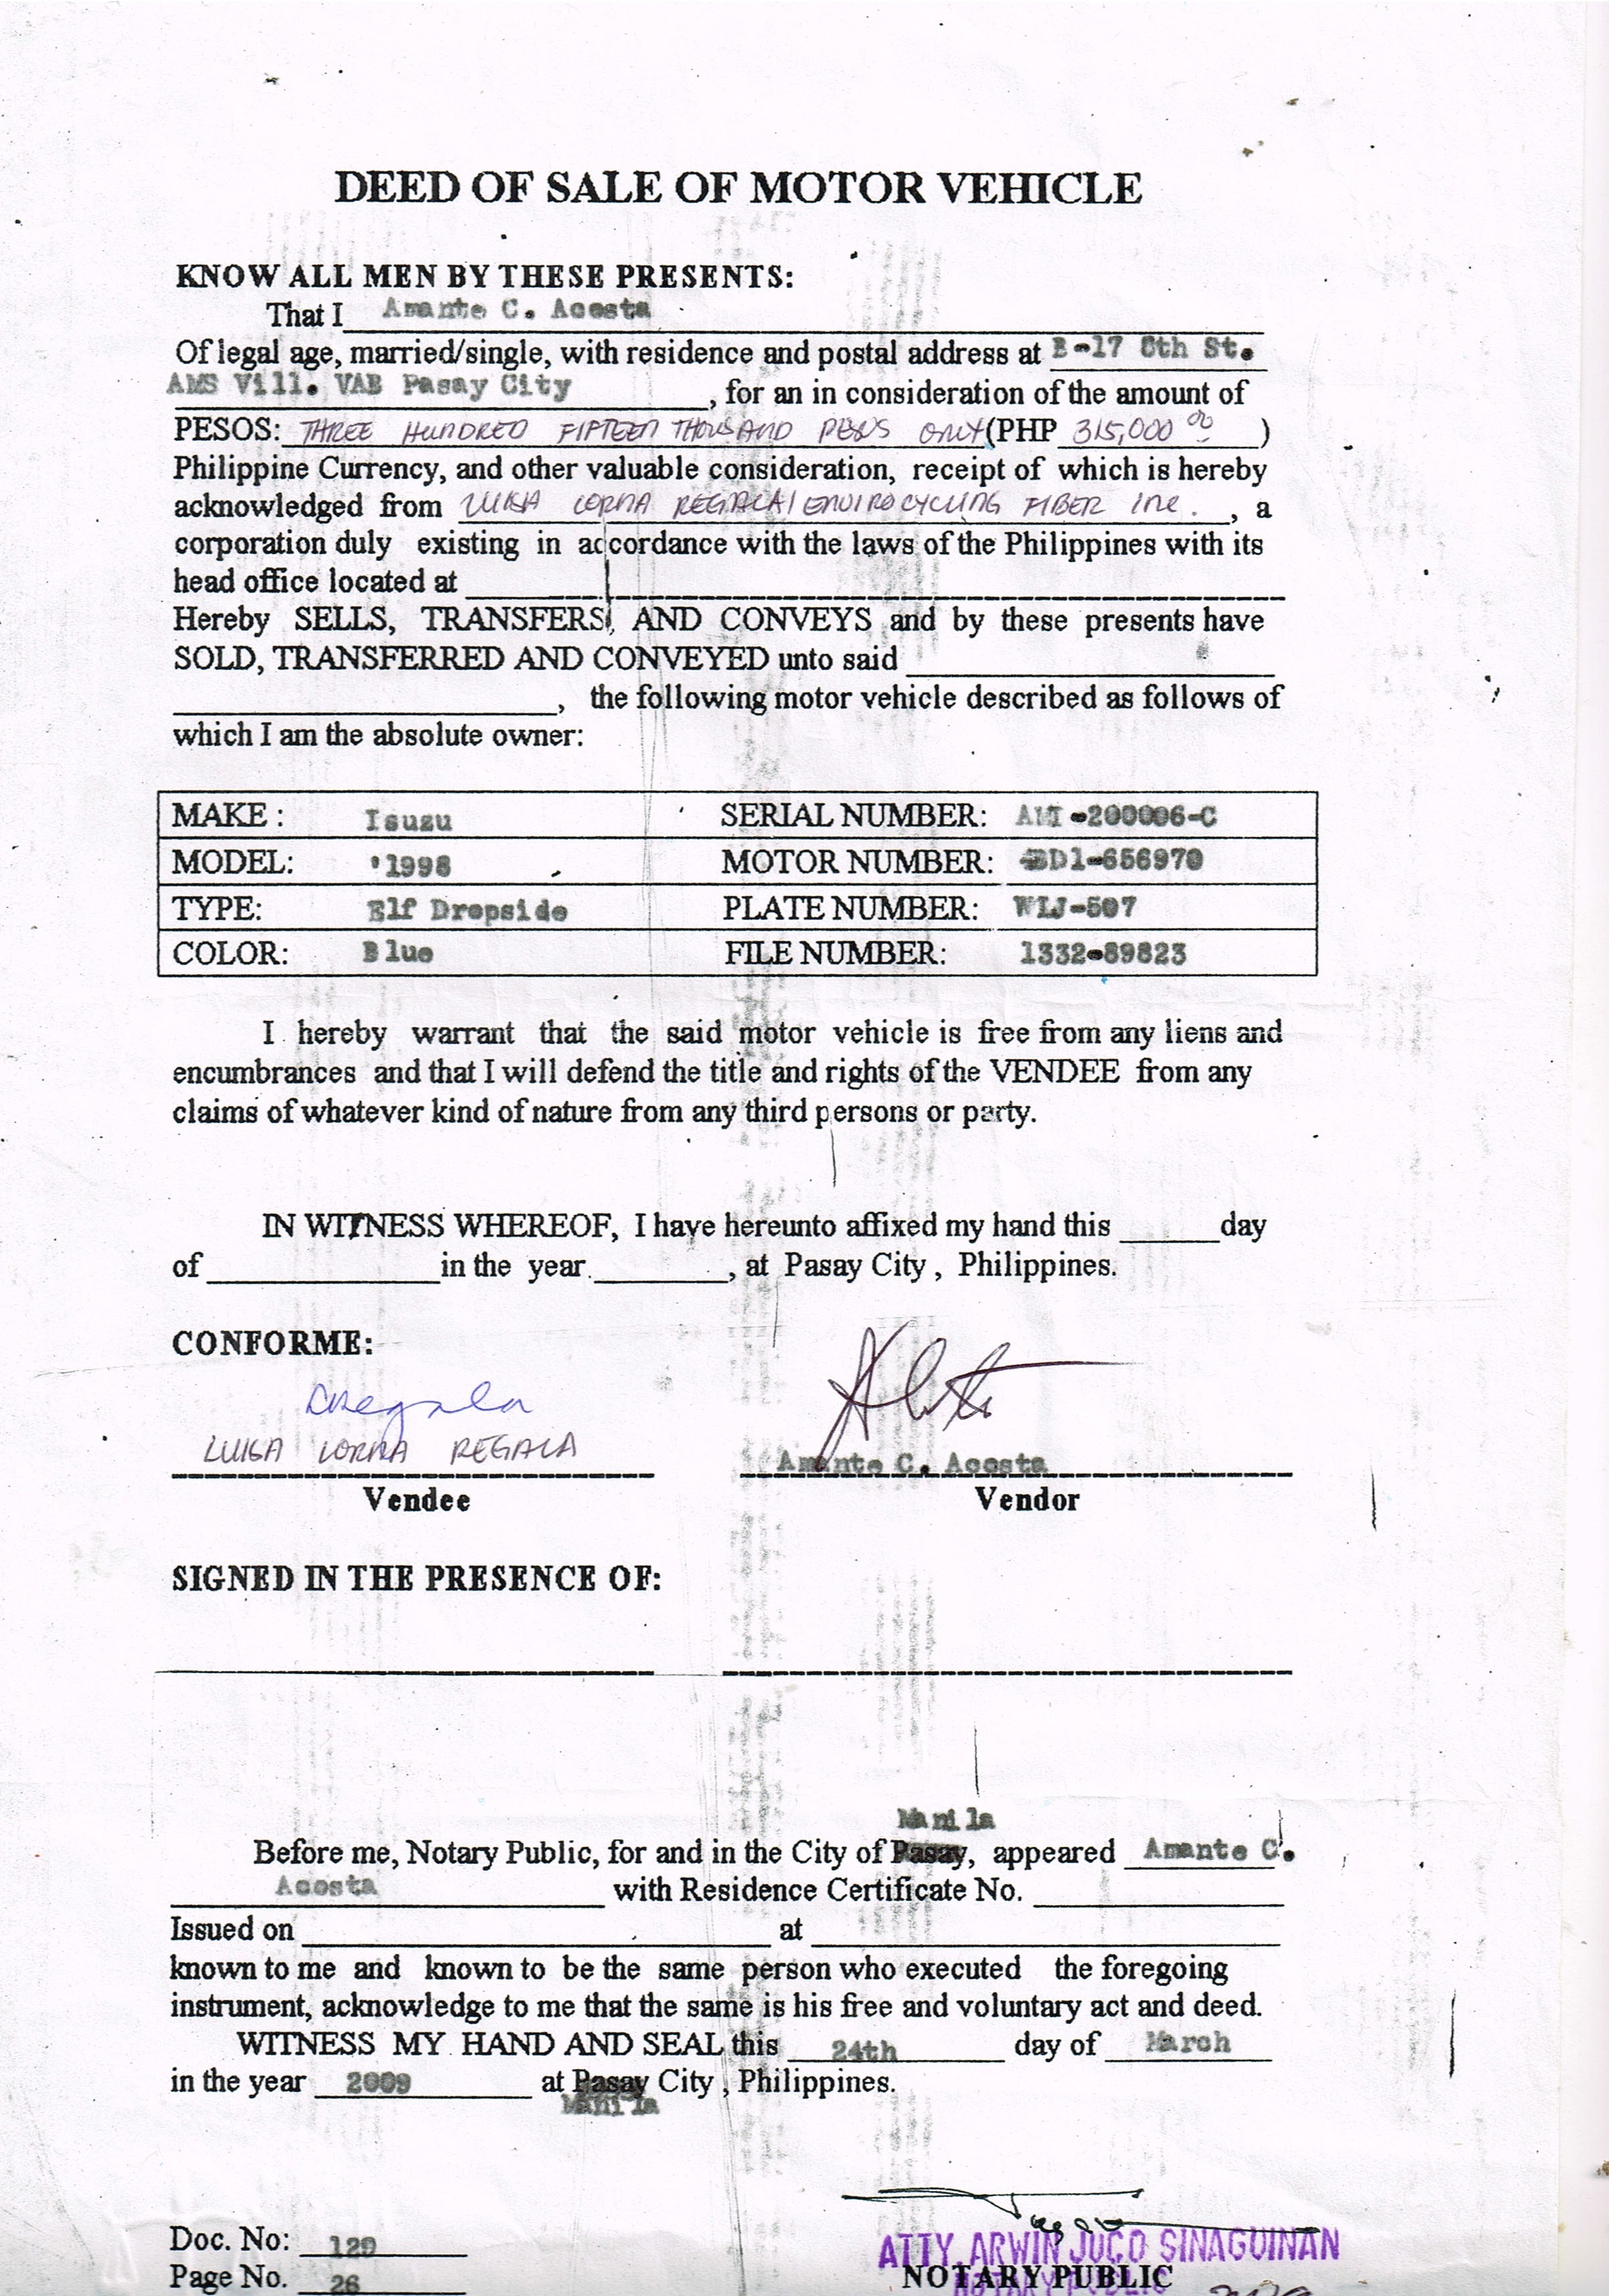 DEED OF SALE OF MOTOR VEHICLE
KNOW ALL MEN BY THESE PRESENTS:
That I Amante C. Acosta
Of legal age, married/single, with residence and postal address at B-17 8th St.
AMS Vill. VAB Pasay City, for an in consideration of the amount of
PESOS: THREE HUNDRED FIFTEEN THOUSAND PESOS ONLY (PHP 315,000 00)
Philippine Currency, and other valuable consideration, receipt of which is hereby
acknowledged from LUISA LORNA REGALA/ ENVIROCYCLING FIBER INC. , a
corporation duly existing in accordance with the laws of the Philippines with its
head office located at
Hereby SELLS, TRANSFERS, AND CONVEYS and by these presents have
SOLD, TRANSFERRED AND CONVEYED unto said
, the following motor vehicle described as follows of
which I am the absolute owner:
MAKE : Isuzu SERIAL NUMBER: AMI-200006-C
MODEL: '1998 MOTOR NUMBER: 4BD1-656970
TYPE: Elf Dropside PLATE NUMBER: WLJ-507
COLOR: Blue FILE NUMBER: 1332-89823
I hereby warrant that the said motor vehicle is free from any liens and
encumbrances and that I will defend the title and rights of the VENDEE from any
claims of whatever kind of nature from any third persons or party.
IN WITNESS WHEREOF, I have hereunto affixed my hand this day
of in the year , at Pasay City , Philippines.
CONFORME:
LUISA LORNA REGALA Amante C. Acosta
Vendee Vendor
SIGNED IN THE PRESENCE OF:
Manila
Before me, Notary Public, for and in the City of Pasay, appeared Amante C.
Acosta with Residence Certificate No.
Issued on at
known to me and known to be the same person who executed the foregoing
instrument, acknowledge to me that the same is his free and voluntary act and deed.
WITNESS MY HAND AND SEAL this 24th day of March
in the year 2009 at Pasay City , Philippines.
Manila
Doc. No: 129
ATTY. ARWIN JUCO SINAGUINAN
Page No. 26 NOTARY PUBLIC